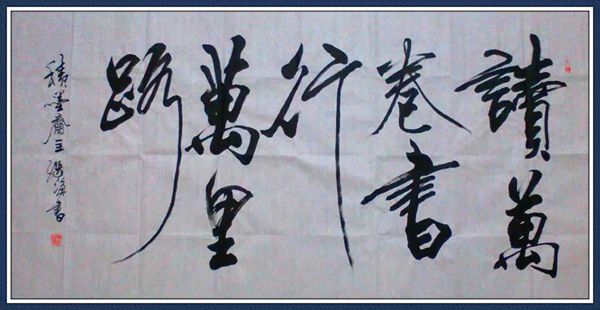 讀萬
卷書
行
萬里
路
積墨齋主張海書